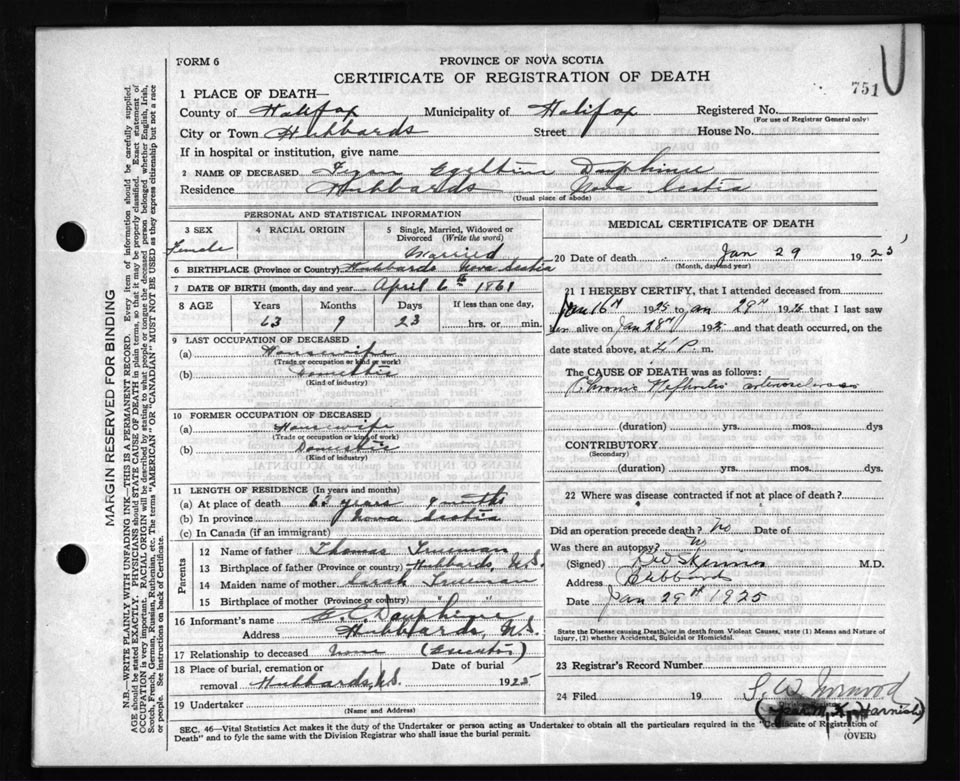 FORM 6
PROVINCE OF NOVA SCOTIA
CERTIFICATE OF REGISTRATION OF DEATH
751
1 PLACE OF DEATH—
County of Halifax Municipality of Halifax Registered No.
(For use of Registrar General only)
City or Town Hubbards Street House No.
If in hospital or institution, give name
2 NAME OF DECEASED Dauphinee
Residence Hubbards Nova Scotia
(Usual place of abode)
PERSONAL AND STATISTICAL INFORMATION
3 SEX 4 RACIAL ORIGIN 5 Single, Married, Widowed or Divorced (Write the word)
Female Married
6 BIRTHPLACE (Province or Country) Hubbards Nova Scotia
7 DATE OF BIRTH (month, day and year) April 6th 1861
8 AGE Years Months Days If less than one day,
63 9 23 hrs. or min.
9 LAST OCCUPATION OF DECEASED
(a) Housewife
(Trade or occupation or kind or work)
(b) Domestic
(Kind of industry)
10 FORMER OCCUPATION OF DECEASED
(a) Housewife
(Trade or occupation or kind of work)
(b) Domestic
(Kind of industry)
11 LENGTH OF RESIDENCE (In years and months)
(a) At place of death 63 years 9 months
(b) In province Nova Scotia
(c) In Canada (if an immigrant)
Parents
12 Name of father Thomas Trueman
13 Birthplace of father (Province or Country) Hubbards, N.S.
14 Maiden name of mother Sarah Trueman
15 Birthplace of mother (Province or country) " "
16 Informant's name E. C. Dauphinee
Address Hubbards, N.S.
17 Relationship to deceased None (Executor)
18 Place of burial, cremation or removal Hubbards, N.S. Date of burial 1925
19 Undertaker
(Name and Address)
MEDICAL CERTIFICATE OF DEATH
20 Date of death Jan 29 1925
(Month, day and year)
21 I HEREBY CERTIFY, that I attended deceased from
Jan 16th 1925 to Jan 29th 1925 that I last saw
her alive on Jan 28th 192 and that death occurred, on the
date stated above, at 4 P. m.
The CAUSE OF DEATH was as follows:
Chronic Nephritis arteriosclerosis
(duration) yrs. mos. dys
CONTRIBUTORY
(Secondary)
(duration) yrs. mos. dys.
22 Where was disease contracted if not at place of death?
Did an operation precede death? No Date of
Was there an autopsy? No
(Signed) M.D.
Address Hubbards
Date Jan 29th 1925
State the Disease causing Death, or in death from Violent Causes, state (1) Means and Nature of Injury, (2) whether Accidental, Suicidal or Homicidal.
23 Registrar's Record Number
24 Filed 19
Harnish)
SEC. 46—Vital Statistics Act makes it the duty of the Undertaker or person acting as Undertaker to obtain all the particulars required in the "Certificate of Registration of
Death" and to fyle the same with the Division Registrar who shall issue the burial permit.
(OVER)
MARGIN RESERVED FOR BINDING
N.B.—WRITE PLAINLY WITH UNFADING INK—THIS IS A PERMANENT RECORD. Every item of information should be carefully supplied.
AGE should be stated EXACTLY. PHYSICIANS should STATE CAUSE OF DEATH in plain terms, so that it may be properly classified. Exact statement of
OCCUPATION is very important. RACIAL ORIGIN will be described by stating to what people or tongue the deceased person belonged whether English, Irish,
Scotch, French, German, Russian, Ruthenian, etc. The terms "AMERICAN" OR "CANADIAN" MUST NOT BE USED as they express citizenship but not a race
or people. See instructions on back of Certificate.